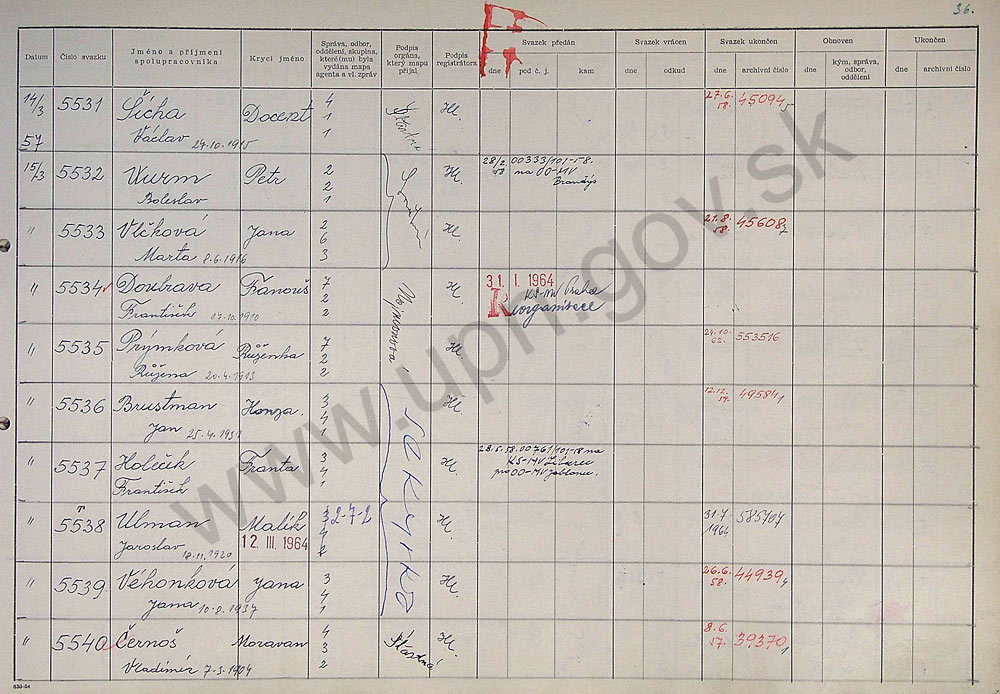 36.
Datum
Číslo svazku
Jméno a příjmení spolupracovníka
Krycí jméno
Správa, odbor, oddělení, skupina, které(mu) byla vydána mapa agenta a vl. zpráv
Podpis orgána, který mapu přijal
Podpis registrátora
Svazek předán
dne
pod č. j.
kam
Svazek vrácen
dne
odkud
Svazek ukončen
dne
archivní číslo
Obnoven
dne
kým, správa, odbor, oddělení
Ukončen
dne
archivní číslo
14/3 5531 Šícha Docent 4 Hl. 27.6. 45094 5
1 58.
57 Václav 24.10.1915 1
15/3 5532 Wurm Petr 2 Hl. 28/2 00333/101-58
2 58 na OO-MV
Boleslav 1 Brandýs
" 5533 Vlčková Jana 2 Hl. 21.8. 45608 7
6 58.
Marta 8.6.1916 3
" 5534 Doubrava Franouš 7 Hl. 31. I. 1964
2 KS-MV Praha
František 07.10.1910 2 Reorganisace
" 5535 Prýmková Růženka 7 Hl. 24.10. 553516
2 62.
Růžena 20.4.1913 2
" 5536 Brustman Honza. 3 Hl. 12.12. 49584 1
4 57.
Jan 25.4.1931 1
" 5537 Holeček Franta 3 Hl. 28.5.58. 00761/101-58 na
4 KS-MV Liberec
František 1 pro OO-MV Jablonec.
SEKYRKO
" 5538 Ulman Malík 32-7-2 Hl. 31.7. 585704
4 1964
Jaroslav 18.11.1920 12. III. 1964
" 5539 Véhonková Jana 3 Hl. 26.6. 44939 4
4 58.
Jana 10.8.1937 1
" 5540 Černoš Moravan 4 Šťastná Hl. 8.6. 39370 1
3 57.
Vladimír 7.3.1904 2
630-54
www.upn.gov.sk